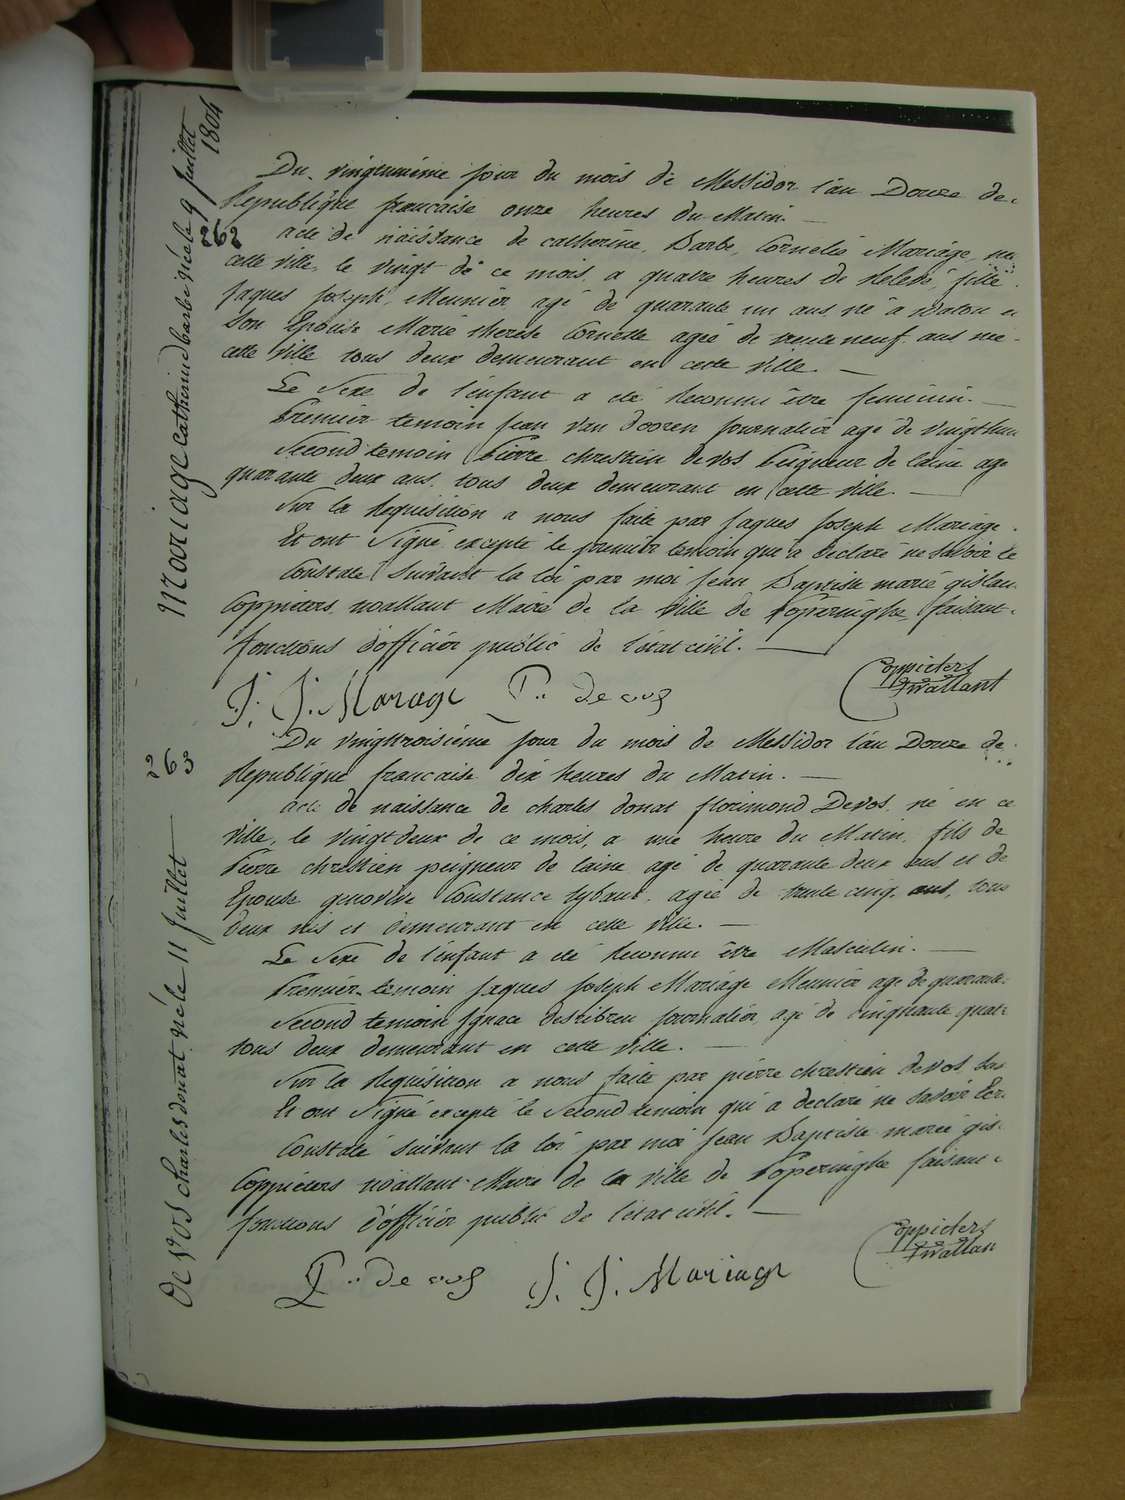 1804
Mariage Catherine barbe née le 9 Juillet
262
Du vingtunième jour du mois de Messidor l'an Douze de
Republique française onze heures du Matin.
acte de naissance de catherine, Barbe, Cornelie Mariage, née
cette ville, le vingt de ce mois, a quatre heures de Relevé, fille
Jaques Joseph, Meunier agé de quarante un ans né a
Son Epouse Marie therese Cornette agée de trente neuf ans née
cette ville tous deux demeurant en cette ville.
Le Sexe de l'enfant a eté Reconnu être feminin.
Premier temoin jean Van dooren journalier agé de
Second temoin Pierre chrestien devos Peigneur de laine age
quarante deux ans, tous deux demeurant en cette ville.
Sur la Requisition a nous faite par Jaques Joseph Mariage
Et ont Signé excepté le premier temoin qui a declaré ne savoir
Constaté Suivant la loi par moi Jean Baptiste marie gislan
Coppieters wallant Maire de la Ville de Poperinghe, faisant
fonctions d'officier public de l'état civil.
J. J. Mariage P.. de vos Coppieters
Twallant
263
De Vos charles donat né le 11 Juillet
Du vingttroisième jour du mois de Messidor l'an Douze de
Republique française dix heures du Matin.
acte de naissance de charles donat florimond Devos, né en ce
ville, le vingtdeux de ce mois, a une heure du Matin, fils de
Pierre chrestien peigneur de laine agé de quarante deux ans et de
Epouse genovive Constance agée de trente cinq ans, tous
deux nés et demeurant en cette ville.
Le Sexe de l'enfant a eté Reconnu être Masculin.
Premier temoin Jaques Joseph Mariage Meunier age de quarante
Second temoin Ignace journalier agé de cinquante quat
tous deux demeurant en cette ville.
Sur la Requisition a nous faite par pierre chrestien devos
Et ont Signé excepté le Second temoin qui a declaré ne savoir Ecr
Constaté suivant la loi par moi Jean Baptiste marie gis
Coppieters wallant Maire de la ville de Poperinghe faisant
fonctions d'officier public de l'état civil.
P.. de vos J. J. Mariage Coppieters
Twallan